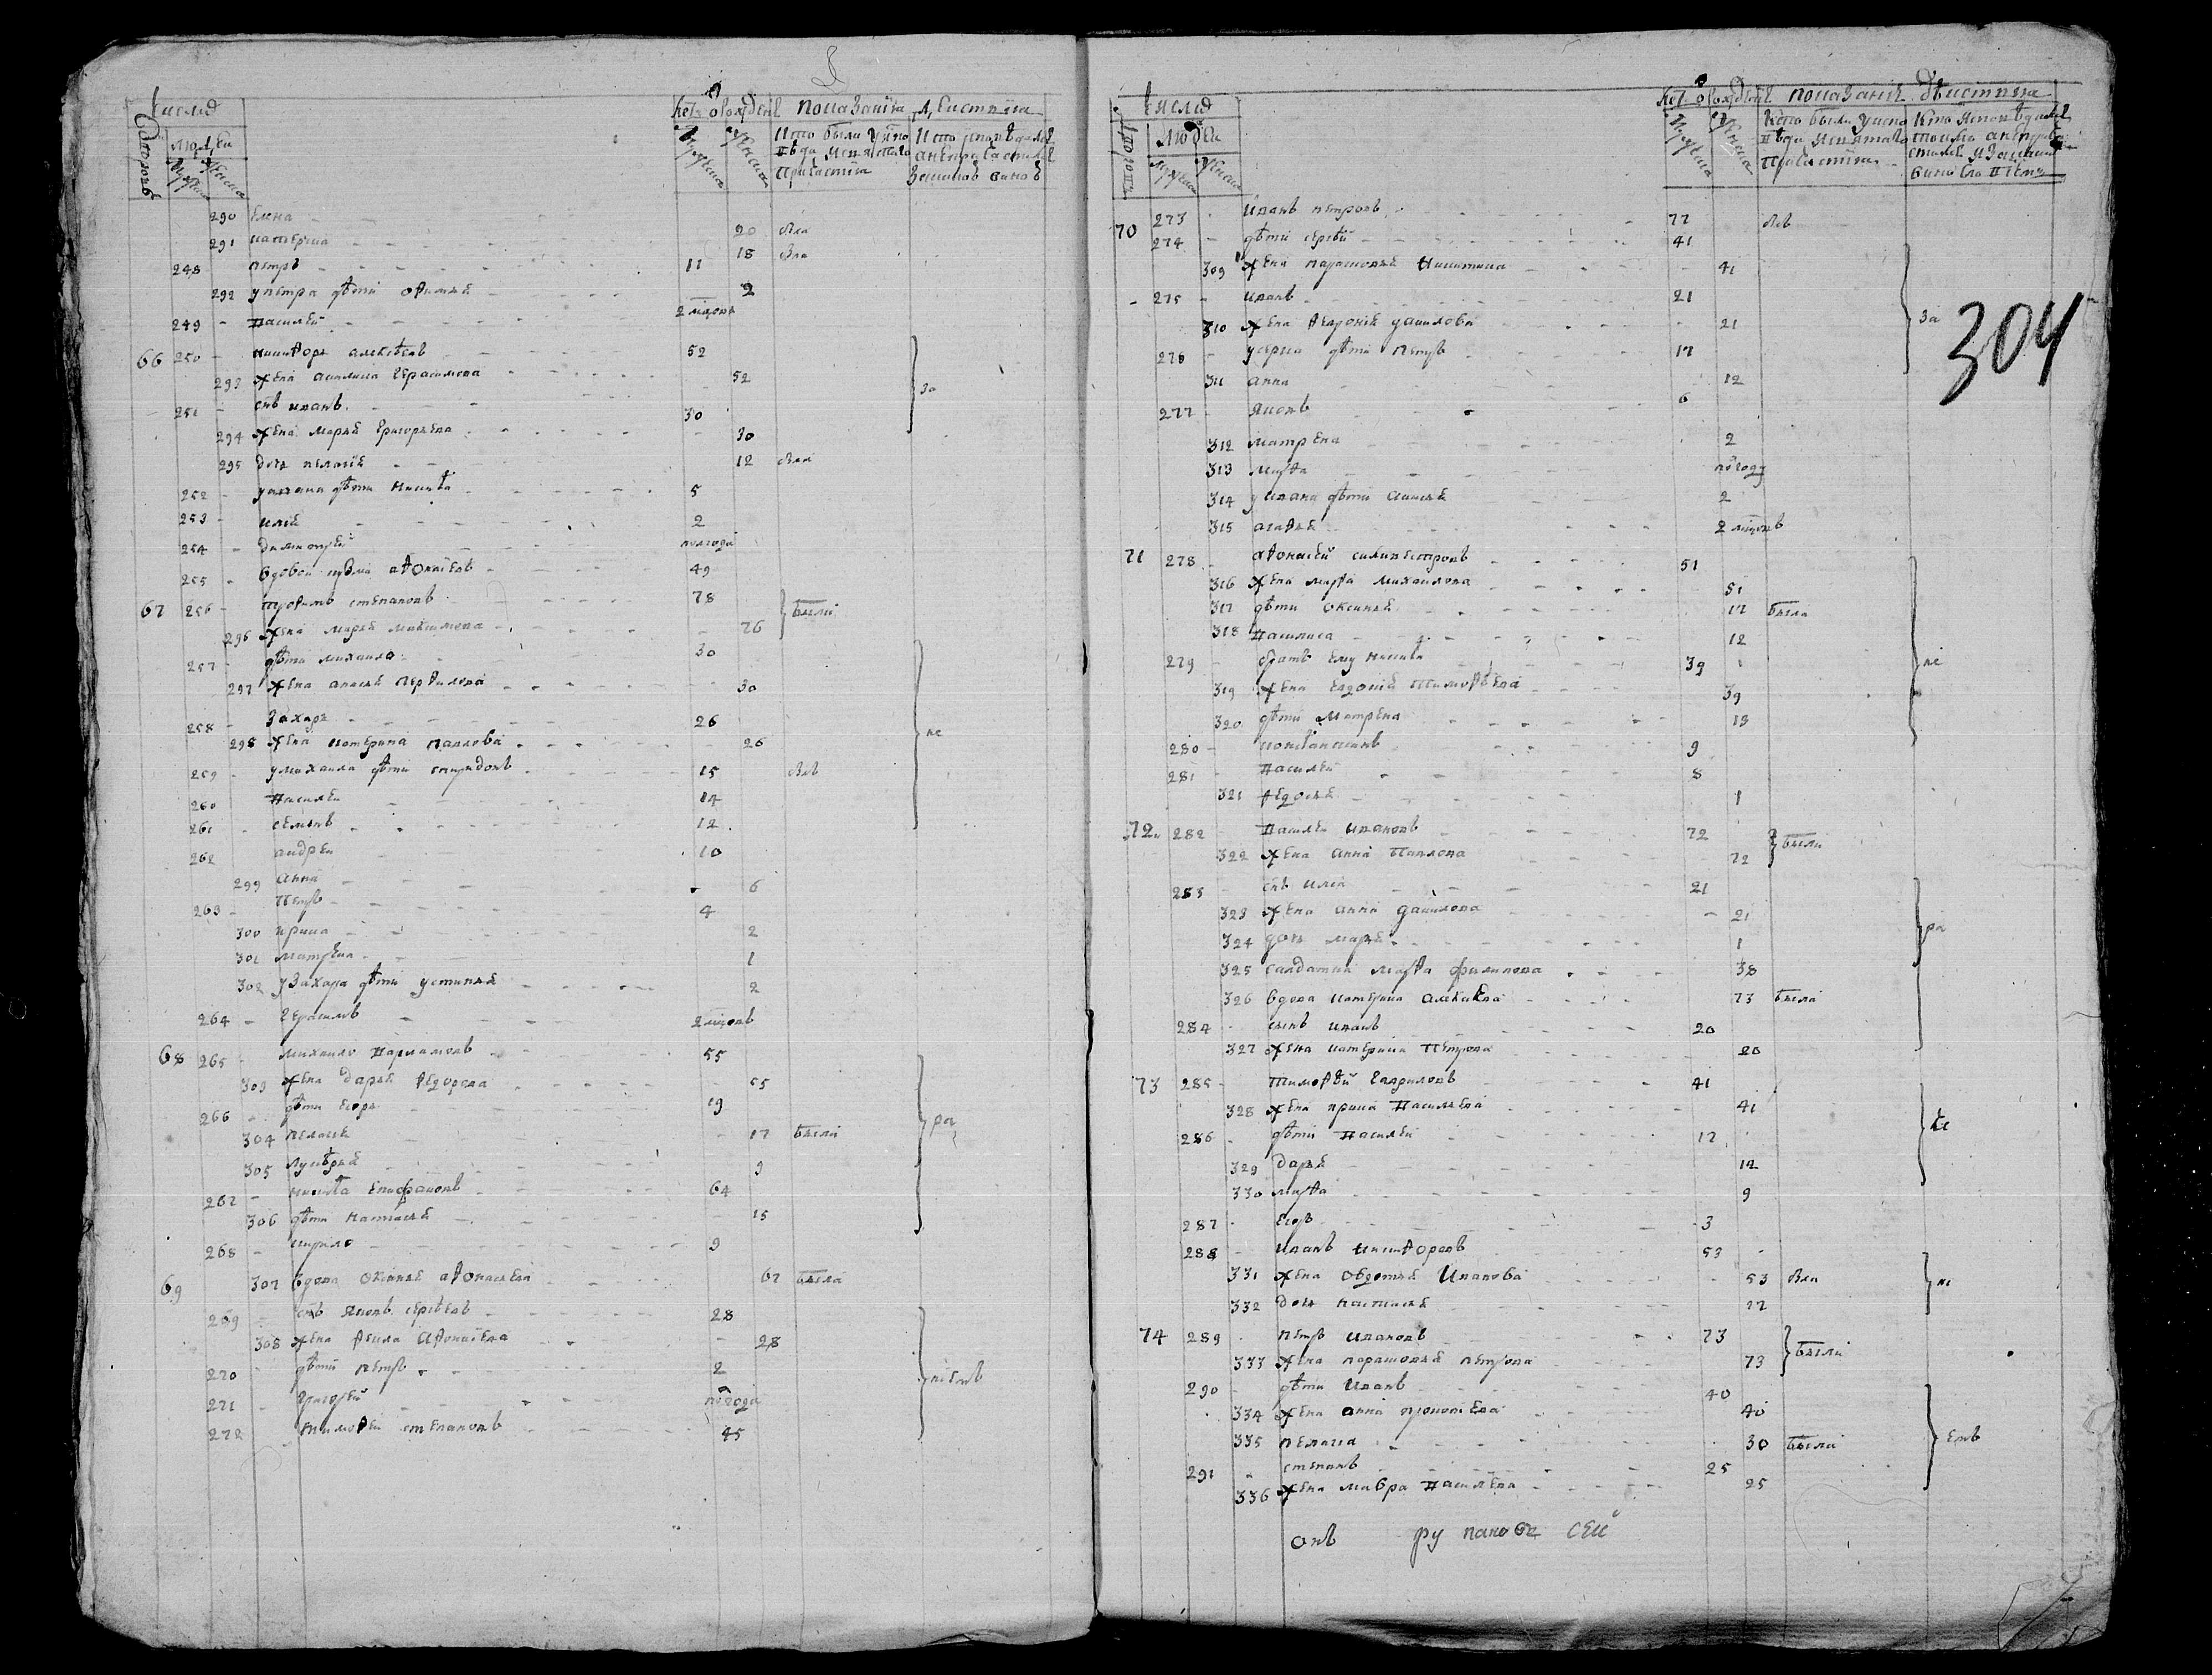 Число
Дворовъ
людеи
Мужска
Женска
Лет о рожденi
показанiя
дѣиствiя
Мужска
Женска
Кто были у испо
вѣди и святаго
причастiя
290 Елена 20 была
291 катерина 18 была
248 петръ 11
292 у петра дѣти офимья 2
249 василей 2 мцовъ
66 250 никифоръ алексѣевъ 52
293 жена акилина герасимова 52
251 снъ иванъ 30
294 жена марья григорьева 30
295 дочь пелагiя 12 была
252 у ивана дѣти никита 5
253 илья 2
254 димитрей полгода
255 вдовой кузма афонасевъ 49
67 256 трофимъ степановъ 78 были
296 жена марья максимова 76
257 дѣти михаило 30
297 жена анисья перфилова 30
258 захаръ 26
298 жена катерина павлова 26
259 у михаила дѣти спиридонъ 15 былъ
260 василеи 14
261 семенъ 12
262 андреи 10
299 анна 6
263 петръ 4
300 ирина 2
301 матрена 1
302 у захара дѣти устинья 2
264 герасимъ 2 мцовъ
68 265 михаило варламовъ 55
303 жена дарья федорова 55
266 дѣти егоръ 19
304 пелагея 17 были
305 лукерья 9
267 никита епифановъ 64
306 дѣти настасья 15
268 кирило 9
69 307 вдова оксинья афонасьева 67 была
269 снъ яковъ сергѣевъ 28
308 жена фекла афонасева 28
270 дѣти петръ 2
271 григорей полгода
272 тимофеи степановъ 45
Число
людеи
Мужска
Женска
Лет о рожденi показанiя дѣиствiя
Мужска
Женска
304
70 273 иванъ петровъ 77 былъ
274 дѣти сергѣй 41
309 жена парасковья никитина 41
275 иванъ 21
310 жена феврония данилова 21
276 у сергея дѣти петръ 17
311 анна 12
277 яковъ 6
312 матрена 2
313 марфа полгоду
314 у ивана дѣти акилина 2
315 агафья 2 мцовъ
71 278 афонасей силивестровъ 51
316 жена марфа михаилова 51
317 дѣти оксинья 17 была
318 василиса 12
279 братъ ему никита 39
319 жена евдокия тимофѣева 39
320 дѣти матрена 13
280 константинъ 9
281 василей 8
321 федосья 1
72 282 василеи ивановъ 72 были
322 жена анна павлова 72
283 снъ илья 21
323 жена анна данилова 21
324 дочь марья 1
325 салдатка марфа филипова 38
326 вдова катерина алексѣева 73 была
284 сынъ иванъ 20
327 жена катерина петрова 20
73 285 тимофѣй гавриловъ 41
328 жена ирина василева 41
286 дѣти василей 17
329 дарья 12
330 марфа 9
287 егоръ 3
288 иванъ никифоровъ 53
331 жена овдотья иванова 53 была
332 дочь настасья 22
74 289 петръ ивановъ 73 были
333 жена парасковья петрова 73
290 дѣти иванъ 40
334 жена анна прокопева 40
335 пелагиа 30 были
291 степанъ 25
336 жена мавра василева 25